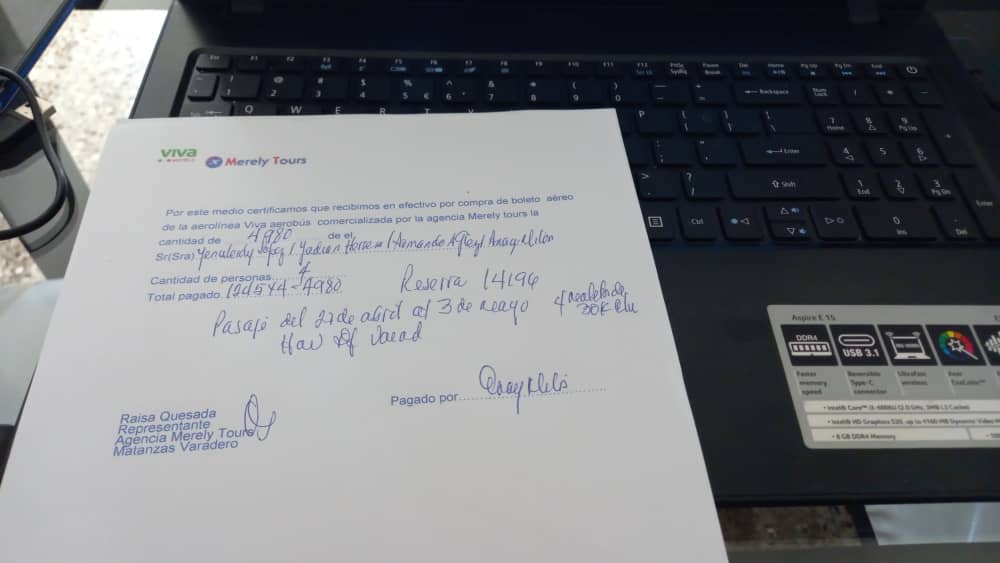 viva
Merely Tours
Por este medio certificamos que recibimos en efectivo por compra de boleto aéreo
de la aerolínea Viva aerobus comercializada por la agencia Merely tours la
cantidad de 4980 de el
Sr(Sra) Yenuleidy López / Yadian Herrera / Armando
Cantidad de personas 4
Total pagado 1245x4=4980 Reserva 14196
Pasaje del 27 de abril al 3 de mayo 4 maletas de
Hav Df 30K c/u
Pagado por
Raisa Quesada
Representante
Agencia Merely Tours
Matanzas Varadero
Aspire E 15
DDR4
USB 3.1
Faster memory speed
Reversible Type-C connector
Ultrafast wireless
Acer
• 8 GB DDR4 Memory
Esc F1 F2 F3 F4 F5 F6 F7 F8 F9 F10 F11 F12 PrtSc SysRq Pause Break Del Home Pg Up Pg Dn End
Backspace Num Lock
Q W E R P
Enter
Shift
Ctrl
7 Home 8 9 Pg Up
4 5 6
1 End 2 3 Pg Dn
0 Ins . Del